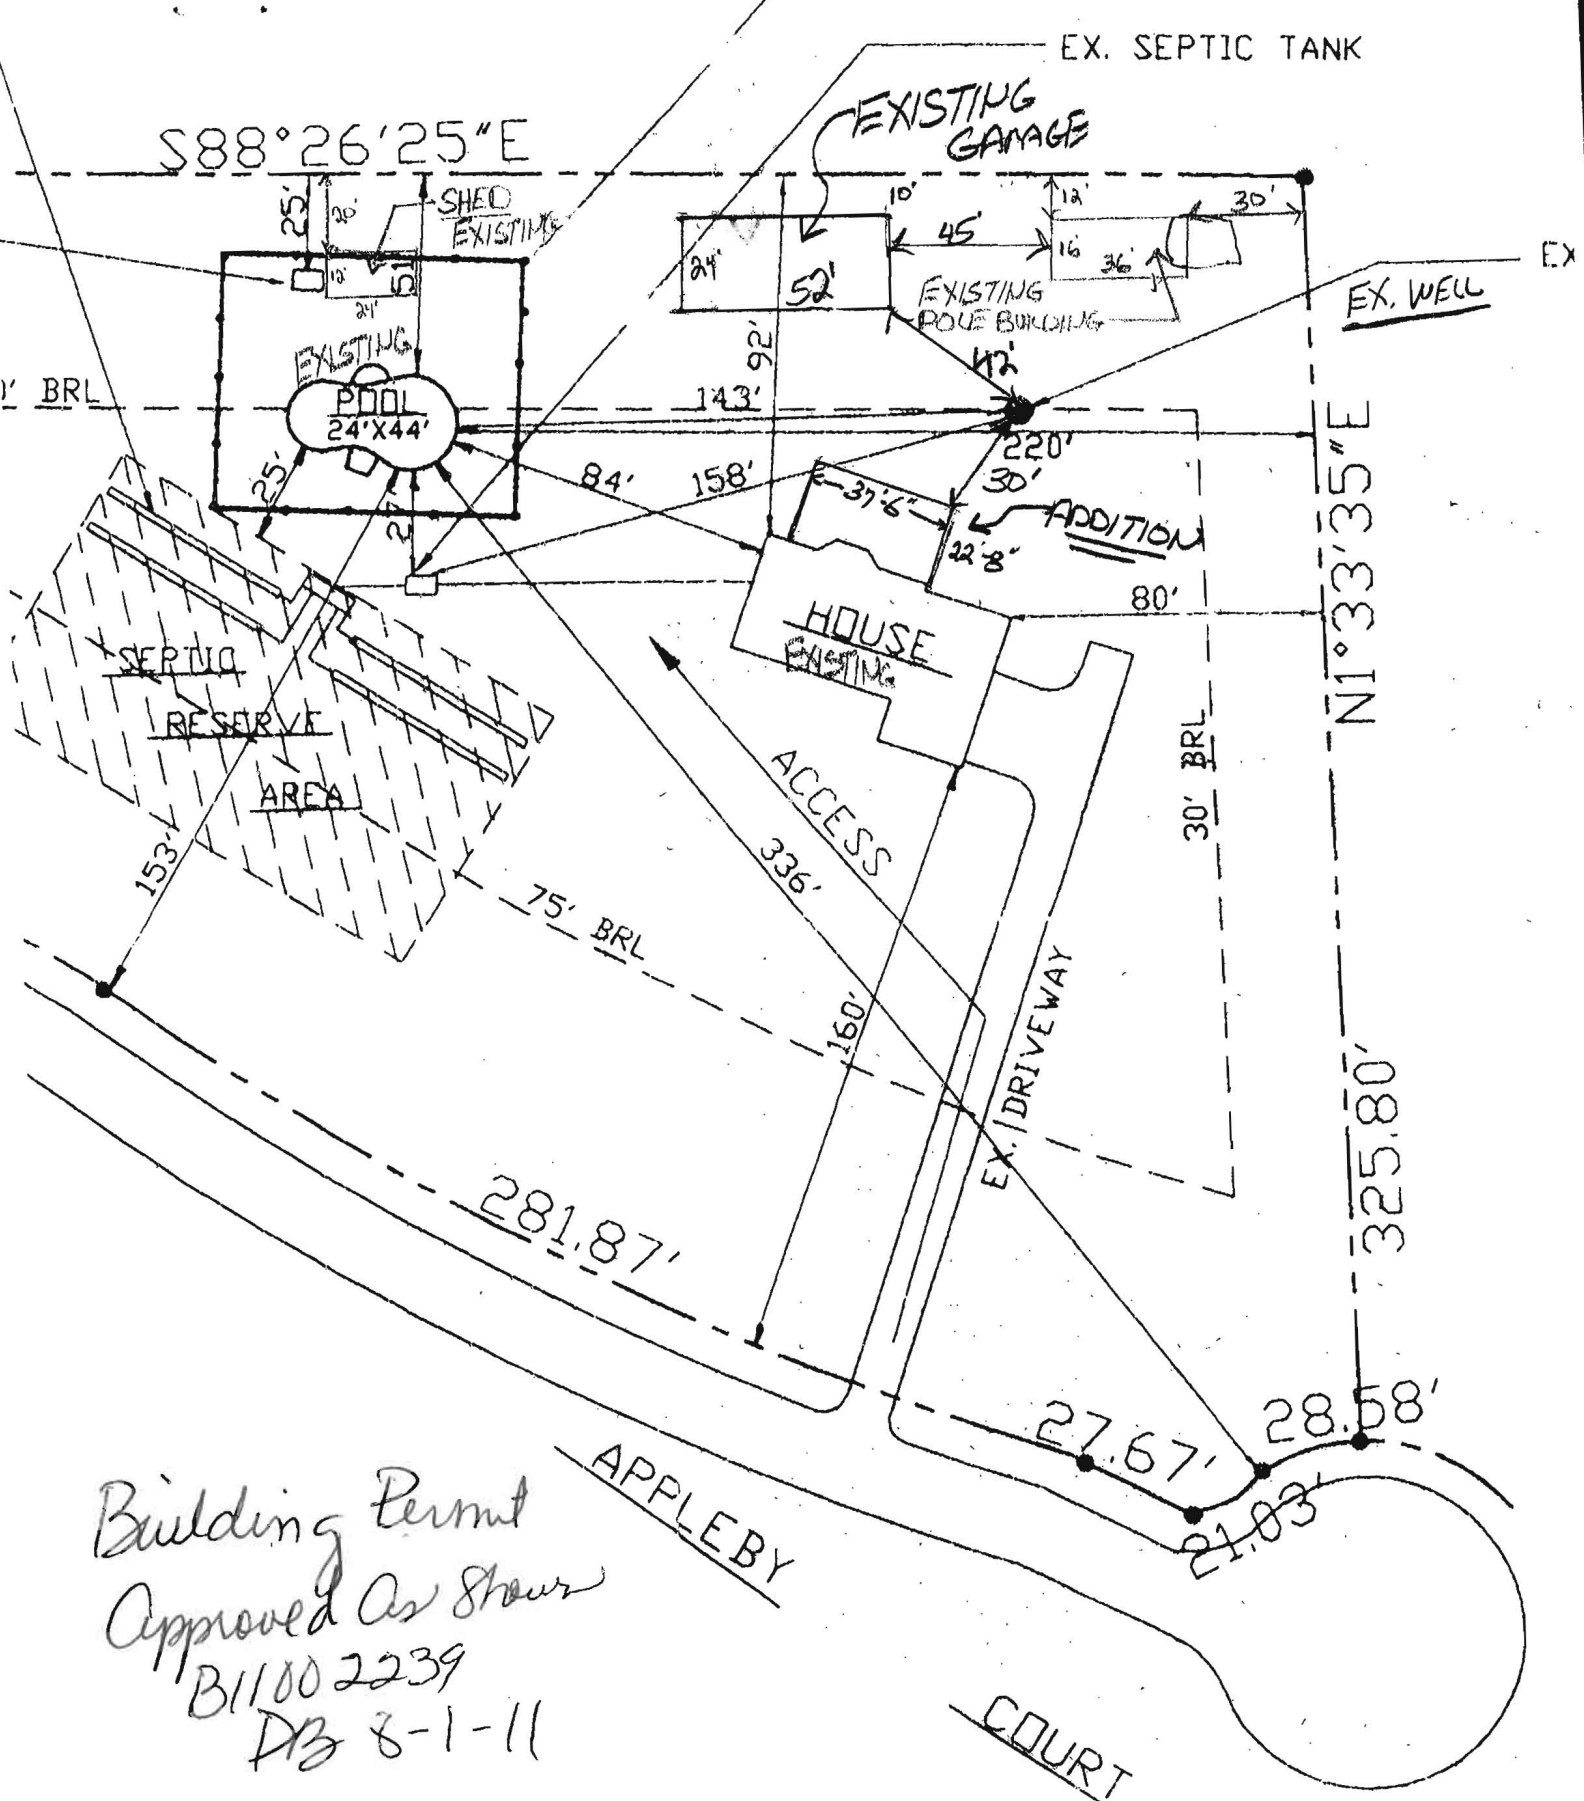 EX. SEPTIC TANK
EXISTING
GARAGE
S88°26'25"E
25'
20'
SHED
EXISTING
12'
24'
51'
10'
45'
12'
30'
16'
36'
24'
52'
EXISTING
POLE BUILDING
EX
EX. WELL
92'
42'
' BRL
EXISTING
POOL
24'X44'
143'
220'
30'
84'
158'
25'
27'
37'-6"
22'-8"
ADDITION
N1°33'35"E
80'
HOUSE
EXISTING
SEPTIC
RESERVE
AREA
153'
ACCESS
336'
30' BRL
75' BRL
160'
EX. DRIVEWAY
325.80'
281.87'
27.67'
28.58'
21.03'
APPLEBY
COURT
Building Permit
Approved As Shown
B11002239
DB 8-1-11